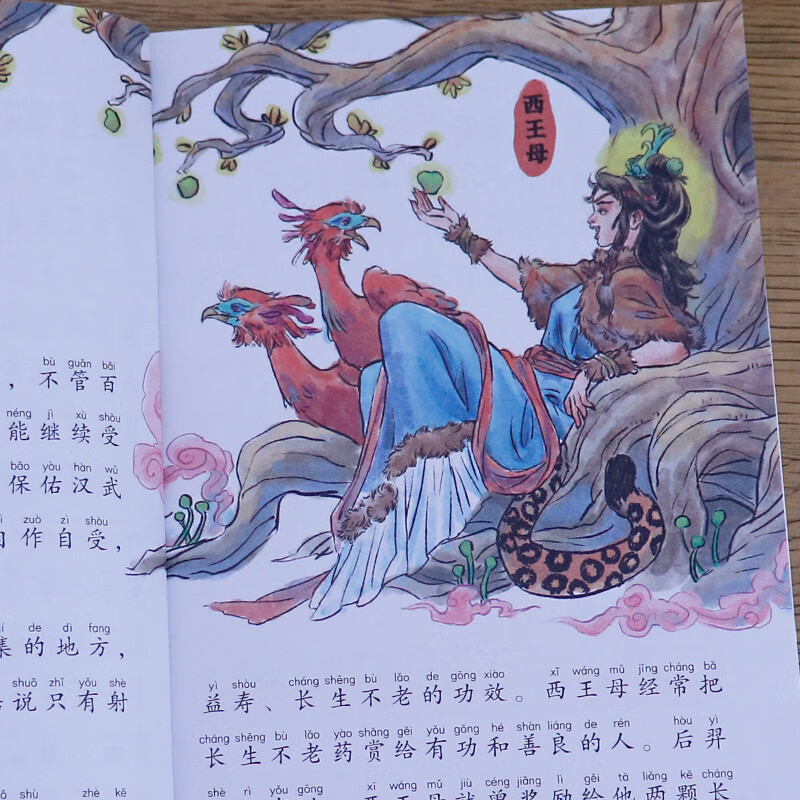 bù guǎn bǎi
，不管百
néng jì xù shòu
能继续受
bǎo yòu hàn wǔ
保佑汉武
zuò zì shòu
作自受，
de dì fang
的地方，
shuō zhǐ yǒu shè
说只有射
西王母
yì shòu cháng shēng bù lǎo de gōng xiào xī wáng mǔ jīng cháng bǎ
益寿、长生不老的功效。西王母经常把
cháng shēng bù lǎo yào shǎng gěi yǒu gōng hé shàn liáng de rén hòu yì
长生不老药赏给有功和善良的人。后羿
shè rì yǒu gōng xī wáng mǔ jiù céng jiǎng lì gěi tā liǎng kē cháng
西王母就曾奖励给他两颗长